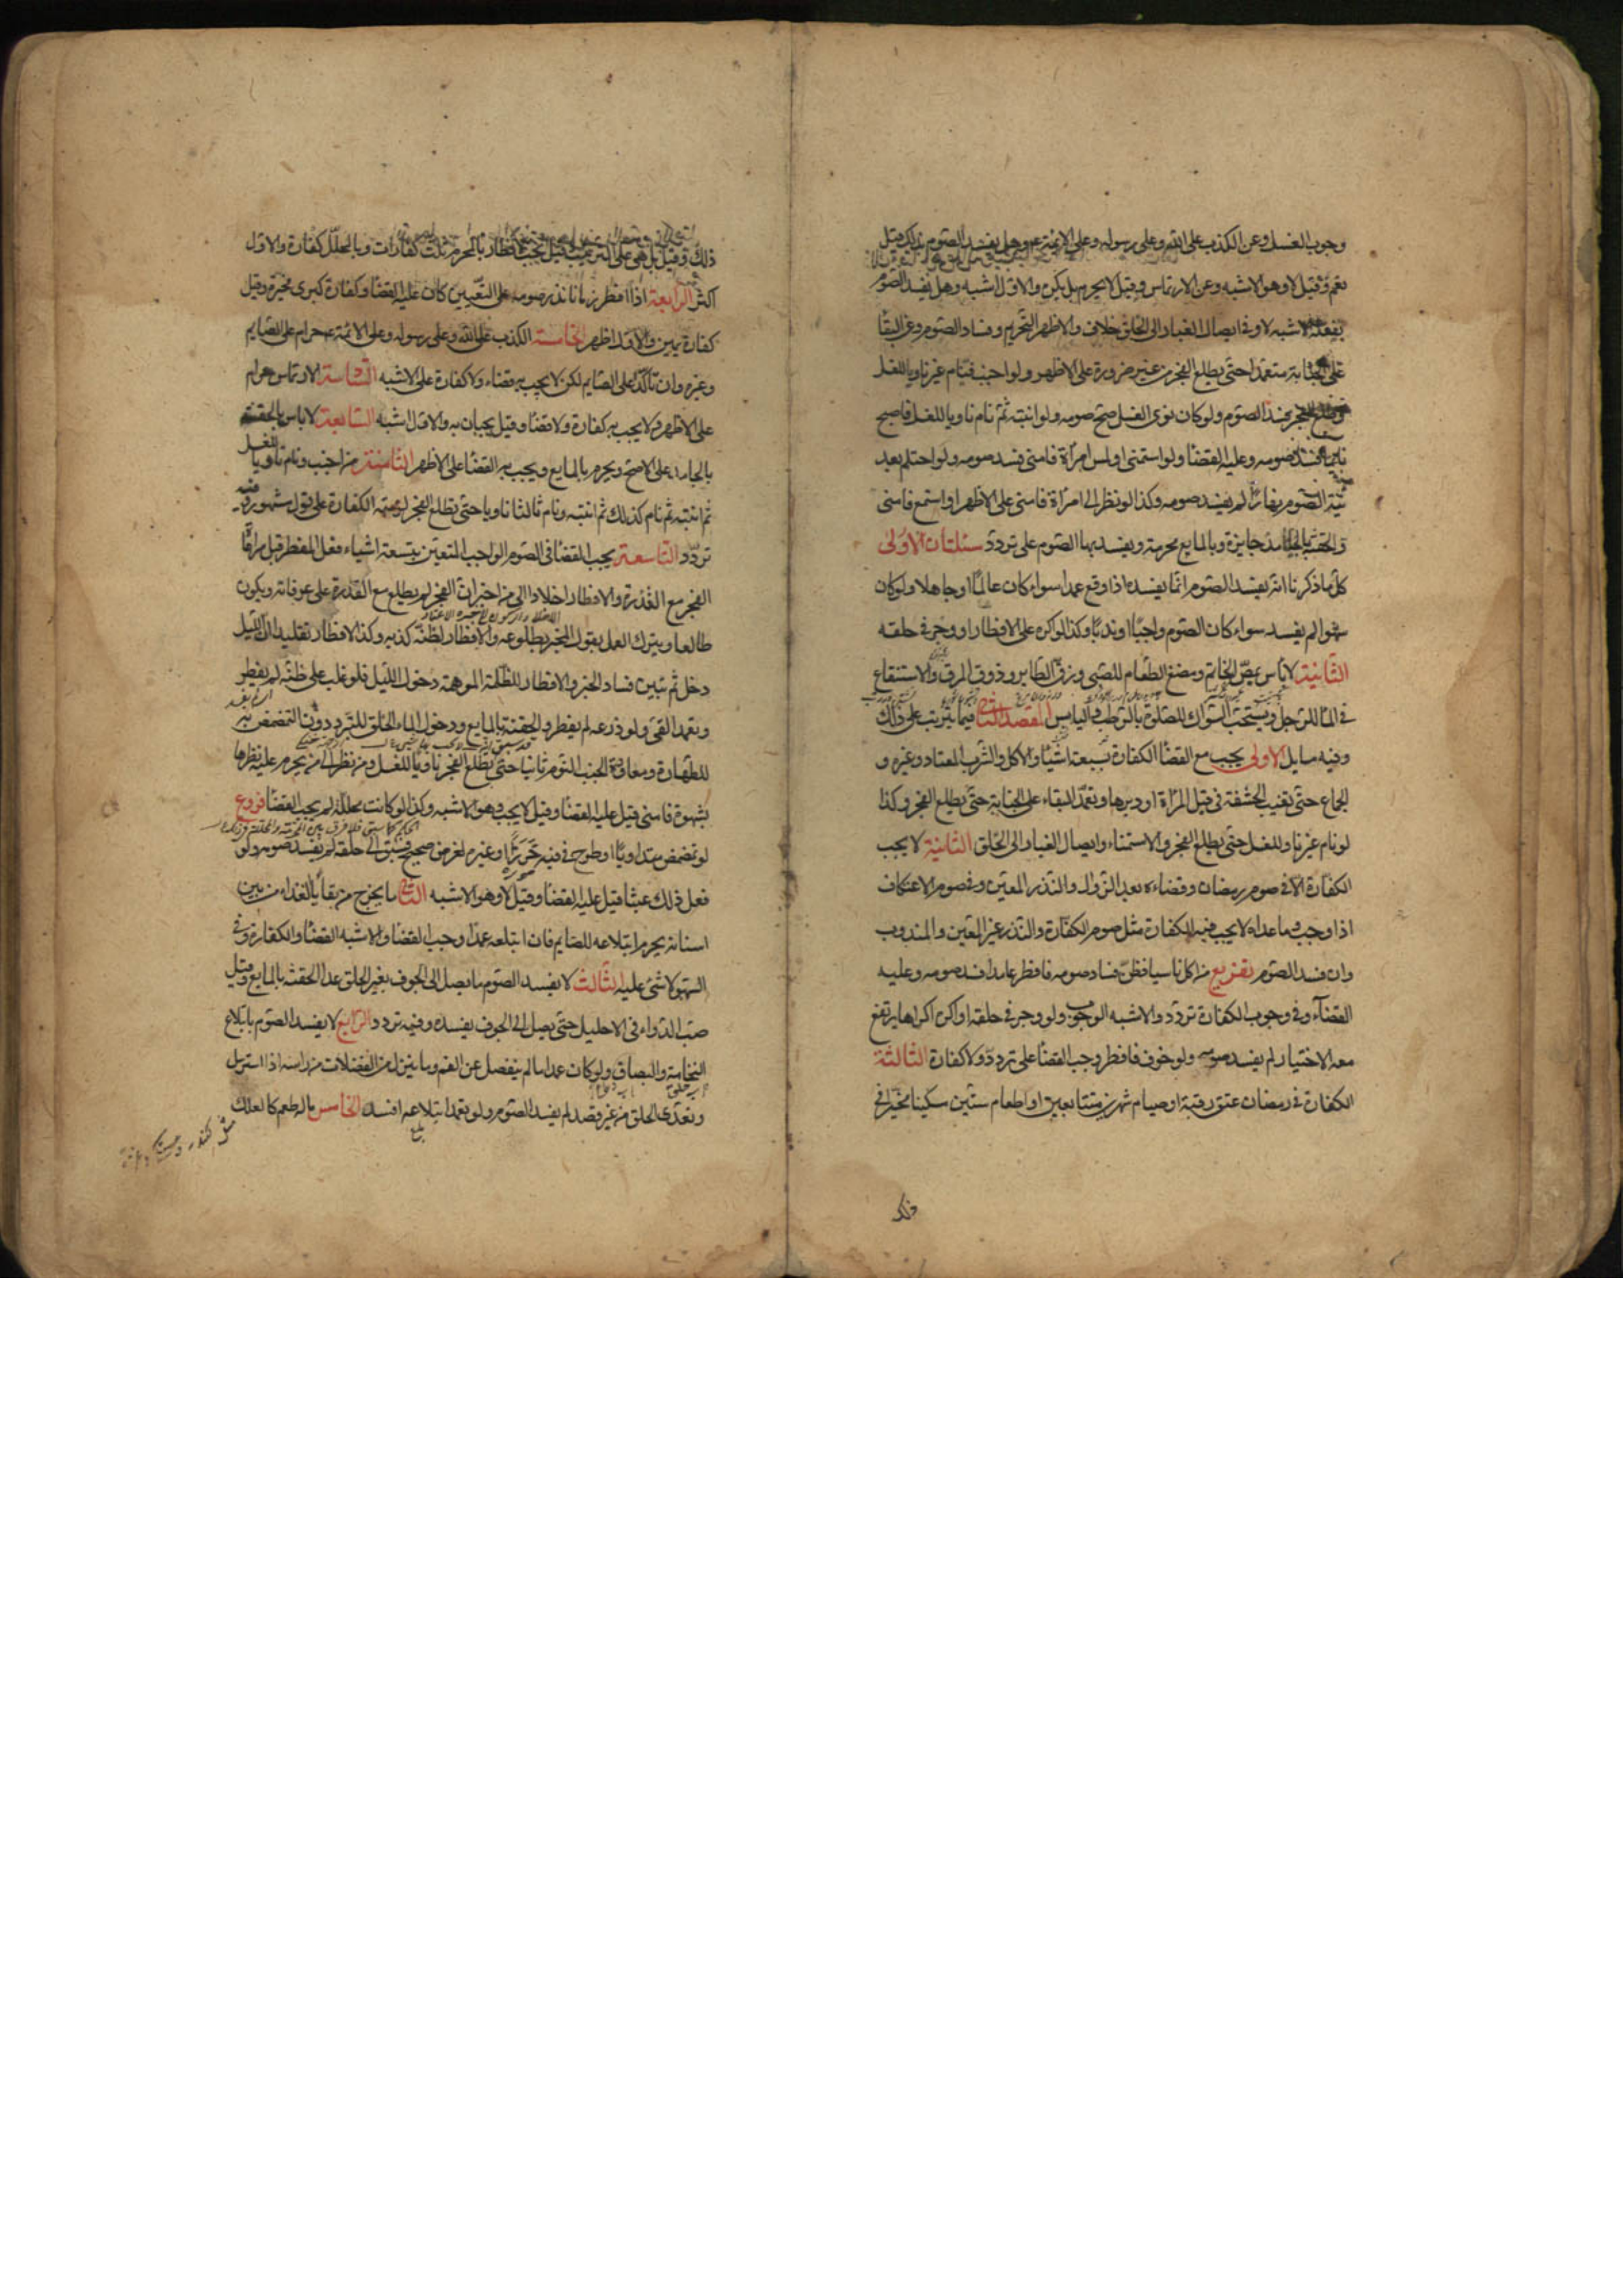 وجوب الغسل وعن الكذب على الله وعلى رسوله وعلى الائمة ع وهل يفسد الصوم بذلك قيل
نعم وقيل لا وهو الاشبه وعن الارتماس وقيل لا يحرم بل يكره والاول اشبه وهل يفسد الصوم
بفعله الاشبه لا وفي ايصال الغبار الى الحلق خلاف والاظهر التحريم وفساد الصوم وعن البقا
على الجنابة متعمدا حتى يطلع الفجر من غير ضرورة على الاظهر ولو اجنب فنام غير ناو للغسل
وطلع الفجر فسد الصوم ولو كان نوى الغسل صح صومه ولو انتبه ثم نام ناويا للغسل فاصبح
نايما فسد صومه وعليه القضا ولو استمنى او لمس امراة فامنى فسد صومه ولو احتلم بعد
نية الصوم نهارا لم يفسد صومه وكذا لو نظر الى امراة فامنى على الاظهر او استمع فامنى
والحقنة بالجامد جايزة وبالمايع محرمة ويفسد بها الصوم على تردد مسئلتان الاولى
كل ما ذكرنا انه يفسد الصوم انما يفسده اذا وقع عمدا سواء كان عالما او جاهلا ولو كان
سهوا لم يفسد سواء كان الصوم واجبا او ندبا وكذا لو اكره على الافطار او وجر في حلقه
الثانية لا باس بمص الخاتم ومضغ الطعام للصبي وزق الطاير وذوق المرق والاستنقاع
في الما للرجل ويستحب السواك للصلوة بالرطب واليابس المقصد الثاني فيما يترتب على ذلك
وفيه مسايل الاولى يجب مع القضا الكفارة بسبعة اشيا والاكل والشرب المعتاد وغيره و
الجماع حتى تغيب الحشفة في قبل المراة او دبرها وتعمد البقاء على الجنابة حتى يطلع الفجر وكذا
لو نام غير ناو للغسل حتى يطلع الفجر والاستمناء وايصال الغبار الى الحلق الثانية لا يجب
الكفارة الا في صوم رمضان وقضاءه بعد الزوال والنذر المعين وفي صوم الاعتكاف
اذا وجب وما عداه لا يجب فيه الكفارة مثل صوم الكفارة والنذر غير المعين والمندوب
وان فسد الصوم تفريع من اكل ناسيا فظن فساد صومه فافطر عامدا فسد صومه وعليه
القضاء وفي وجوب الكفارة تردد والاشبه الوجوب ولو وجر في حلقه او اكره اكراها يرتفع
معه الاختيار لم يفسد صومه ولو خوف فافطر وجب القضا على تردد ولا كفارة الثالثة
الكفارة في رمضان عتق رقبة او صيام شهرين متتابعين او اطعام ستين مسكينا مخيرا في
ذلك
ذلك وقيل بل هي على الترتيب وقيل يجب بالافطار بالمحرم ثلث كفارات وبالمحلل كفارة والاول
اكثر الرابعة اذا افطر زمانا نذر صومه على التعيين كان عليه القضا وكفارة كبرى مخيرة وقيل
كفارة يمين والاول اظهر الخامسة الكذب على الله وعلى رسوله وعلى الائمة ع حرام على الصايم
وغيره وان تاكد على الصايم لكن لا يجب به قضاء ولا كفارة على الاشبه السادسة الارتماس حرام
على الاظهر ولا يجب به كفارة ولا قضا وقيل يجبان به والاول اشبه السابعة لا باس بالحقنة
بالجامد على الاصح ويحرم بالمايع ويجب به القضا على الاظهر الثامنة من اجنب ونام ناويا للغسل
ثم انتبه ثم نام كذلك ثم انتبه ونام ثالثا ناويا حتى يطلع الفجر لزمته الكفارة على قول مشهور وفيه
تردد التاسعة يجب القضا في الصوم الواجب المتعين بتسعة اشياء فعل المفطر قبل مراعاة
الفجر مع القدرة والافطار اخلادا الى من اخبر ان الفجر لم يطلع مع القدرة على عرفانه ويكون
طالعا وبترك العمل بقول المخبر بطلوعه والافطار لظنه كذبه وكذا الافطار تقليدا ان الليل
دخل ثم تبين فساد الخبر والافطار للظلمة الموهمة دخول الليل فلو غلب على ظنه لم يفطر
وتعمد القي ولو ذرعه لم يفطر والحقنة بالمايع ودخول الماء الحلق للتبرد دون التمضمض به
للطهارة ومعاودة الجنب النوم ثانيا حتى يطلع الفجر ناويا للغسل ومن نظر الى من يحرم عليه نظرها
بشهوة فامنى قيل عليه القضا وقيل لا يجب وهو الاشبه وكذا لو كانت محللة لم يجب القضا فروع
لو تمضمض متداويا او طرح في فيه خرزا او غيره لغرض صحيح فسبق الى حلقه لم يفسد صومه ولو
فعل ذلك عبثا قيل عليه القضا وقيل لا وهو الاشبه الثاني ما يخرج من بقايا الغذاء من بين
اسنانه يحرم ابتلاعه للصايم فان ابتلعه عمدا وجب القضا والاشبه القضا والكفارة وفي
السهو لا شي عليه الثالث لا يفسد الصوم ما يصل الى الجوف بغير الحلق عدا الحقنة بالمايع وقيل
صب الدواء في الاحليل حتى يصل الى الجوف يفسده وفيه تردد الرابع لا يفسد الصوم بابتلاع
النخامة والبصاق ولو كان عمدا ما لم ينفصل عن الفم وما ينزل من الفضلات من راسه اذا استرسل
وتعدى الحلق من غير قصد لم يفسد الصوم ولو تعمد ابتلاعه افسد الخامس ما له طعم كالعلك
بلغ